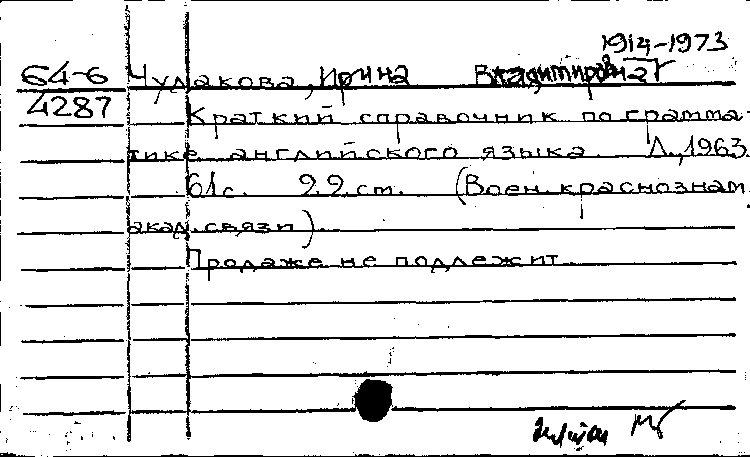 1914-1973
64-6 Чудакова, Ирина
4287 Краткий справочник по грамма-
тике английского языка. Л., 1963.
61с. 22 см. (Воен. краснознам.
акад. связи).
Продаже не подлежит.